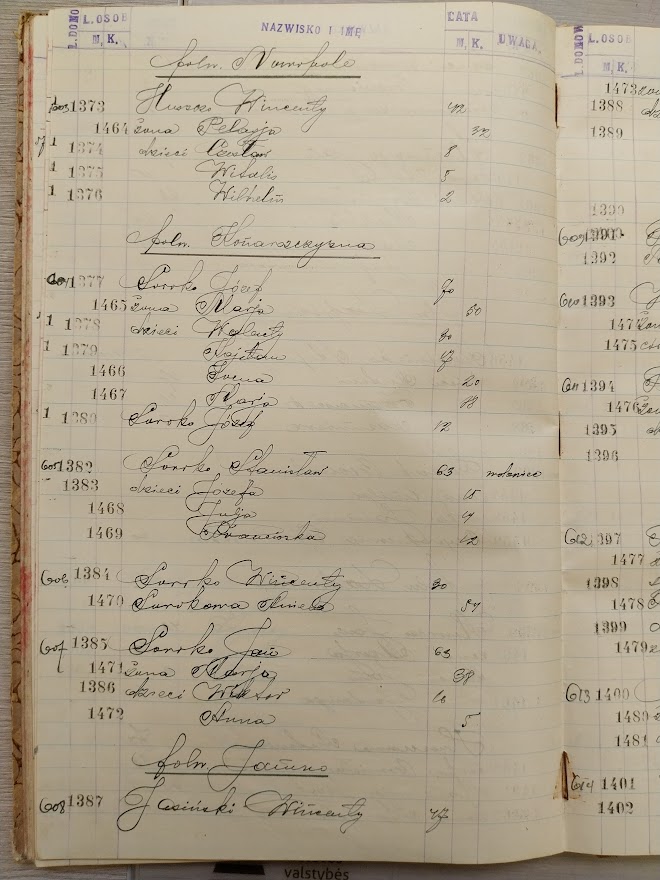 L. DOMÓW L. OSOB NAZWISKO I IMIĘ DATA
M. K. M. K. UWAGA.
folw. Nowopole
603 1373 Huszcz Wincenty 42
1464 żona Pelagja 32
1 1374 dzieci Czesław 8
1 1375 Witalis 5
1 1376 Wilhelm 2
folw. Konarszczyzna
604 1377 Soroko Józef 70
1465 żona Marja 50
1 1378 dzieci Walenty 30
1 1379 Kajetan
1466 20
1467 Marja 18
1 1380 Soroko Józef 12
605 1382 Soroko Stanisław 63 wdowiec
1383 dzieci Józef
1468 Julja
1469 Franciszka 12
606 1384 Soroko Wincenty 30
1470 Sorokowa 57
607 1385 Soroko Jan 65
1471 żona Marja 38
1386 dzieci Wiktor 10
1472 Anna 5
folw. Janowo
608 1387 Jasiński Wincenty 47
L. DOMÓW L. OSOB
M. K.
1473
1388
1389
1390
609 1391
1392
610 1393
1474
1475
611 1394
1476
1395
1396
612 1397
1477
1398
1478
1399
1479
613 1400
1480
1481
614 1401
1402
valstybės